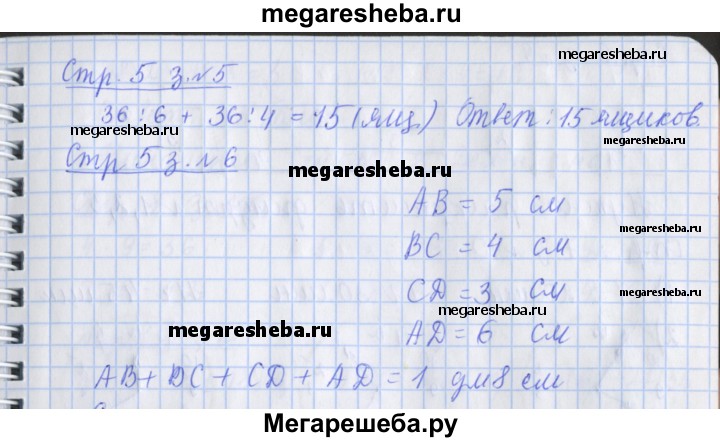 megaresheba.ru
megaresheba.ru
Стр. 5 з. №5
36 : 6 + 36 : 4 = 15 (ящ.) Ответ: 15 ящиков.
megaresheba.ru
Стр 5 з. №6
megaresheba.ru
megaresheba.ru
АВ = 5 см
ВС = 4 см
megaresheba.ru
CD = 3 см
megaresheba.ru
megaresheba.ru
АD = 6 см
megaresheba.ru
АВ + ВС + CD + АD = 1 дм 8 см
Мегарешеба.ру